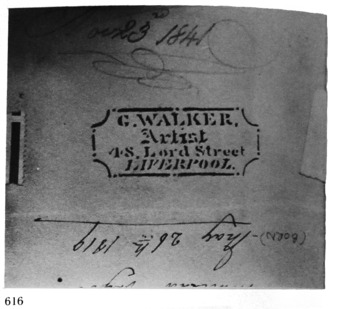 Nov 23rd 1841
G. WALKER,
Artist
48, Lord Street
LIVERPOOL.
(BORN) - May 26th 1819
616